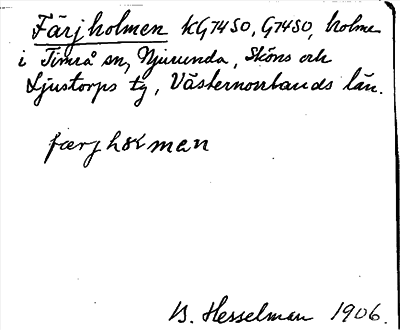 Färjholmen KG74SO, G74SO, holme
i Timrå sn, Njurunda, Sköns och
Ljustorps tg, Västernorrlands län.
færjhɷlmen
B. Hesselman 1906.